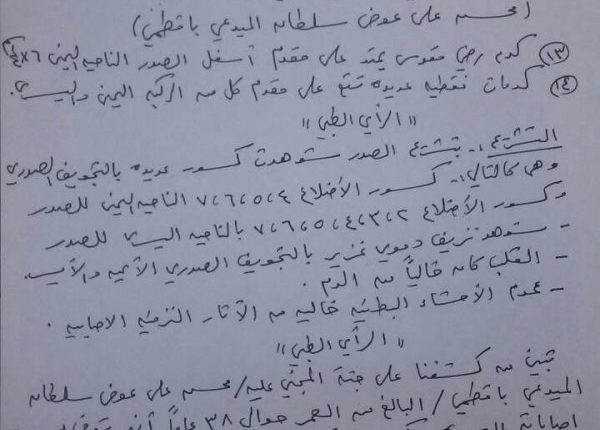 (محسن علي عوض سلطان الميدعي باقطمي)
(١٣) كدم رضي مقوس يمتد على مقدم أسفل الصدر الناحيه اليمنى ٦×٤سم
(١٤) كدمات نقطيه عديده تقع على مقدم كل من الركبه اليمنى واليسرى.
"الرأي الطبي"
التشريح:- بتشريح الصدر شوهدت كسور عديده بالتجويف الصدري
وهي كالتالي:- كسور الأضلاع ٤،٥،٦،٧ الناحيه اليمنى للصدر
وكسور الأضلاع ٢،٣،٤،٥،٦،٧ بالناحيه اليسرى للصدر
- شوهد نزيف دموي غزير بالتجويف الصدري الأيمن والأيسر
- القلب كان خالياً من الدم.
- عموم الأحشاء البطنيه خاليه من الآثار النزفيه الاصابيه.
"الرأي الطبي"
تبين من كشفنا على جثة المجني عليه/ محسن علي عوض سلطان
الميدعي باقطمي/ البالغ من العمر حوالي ٣٨ عاماً أنه